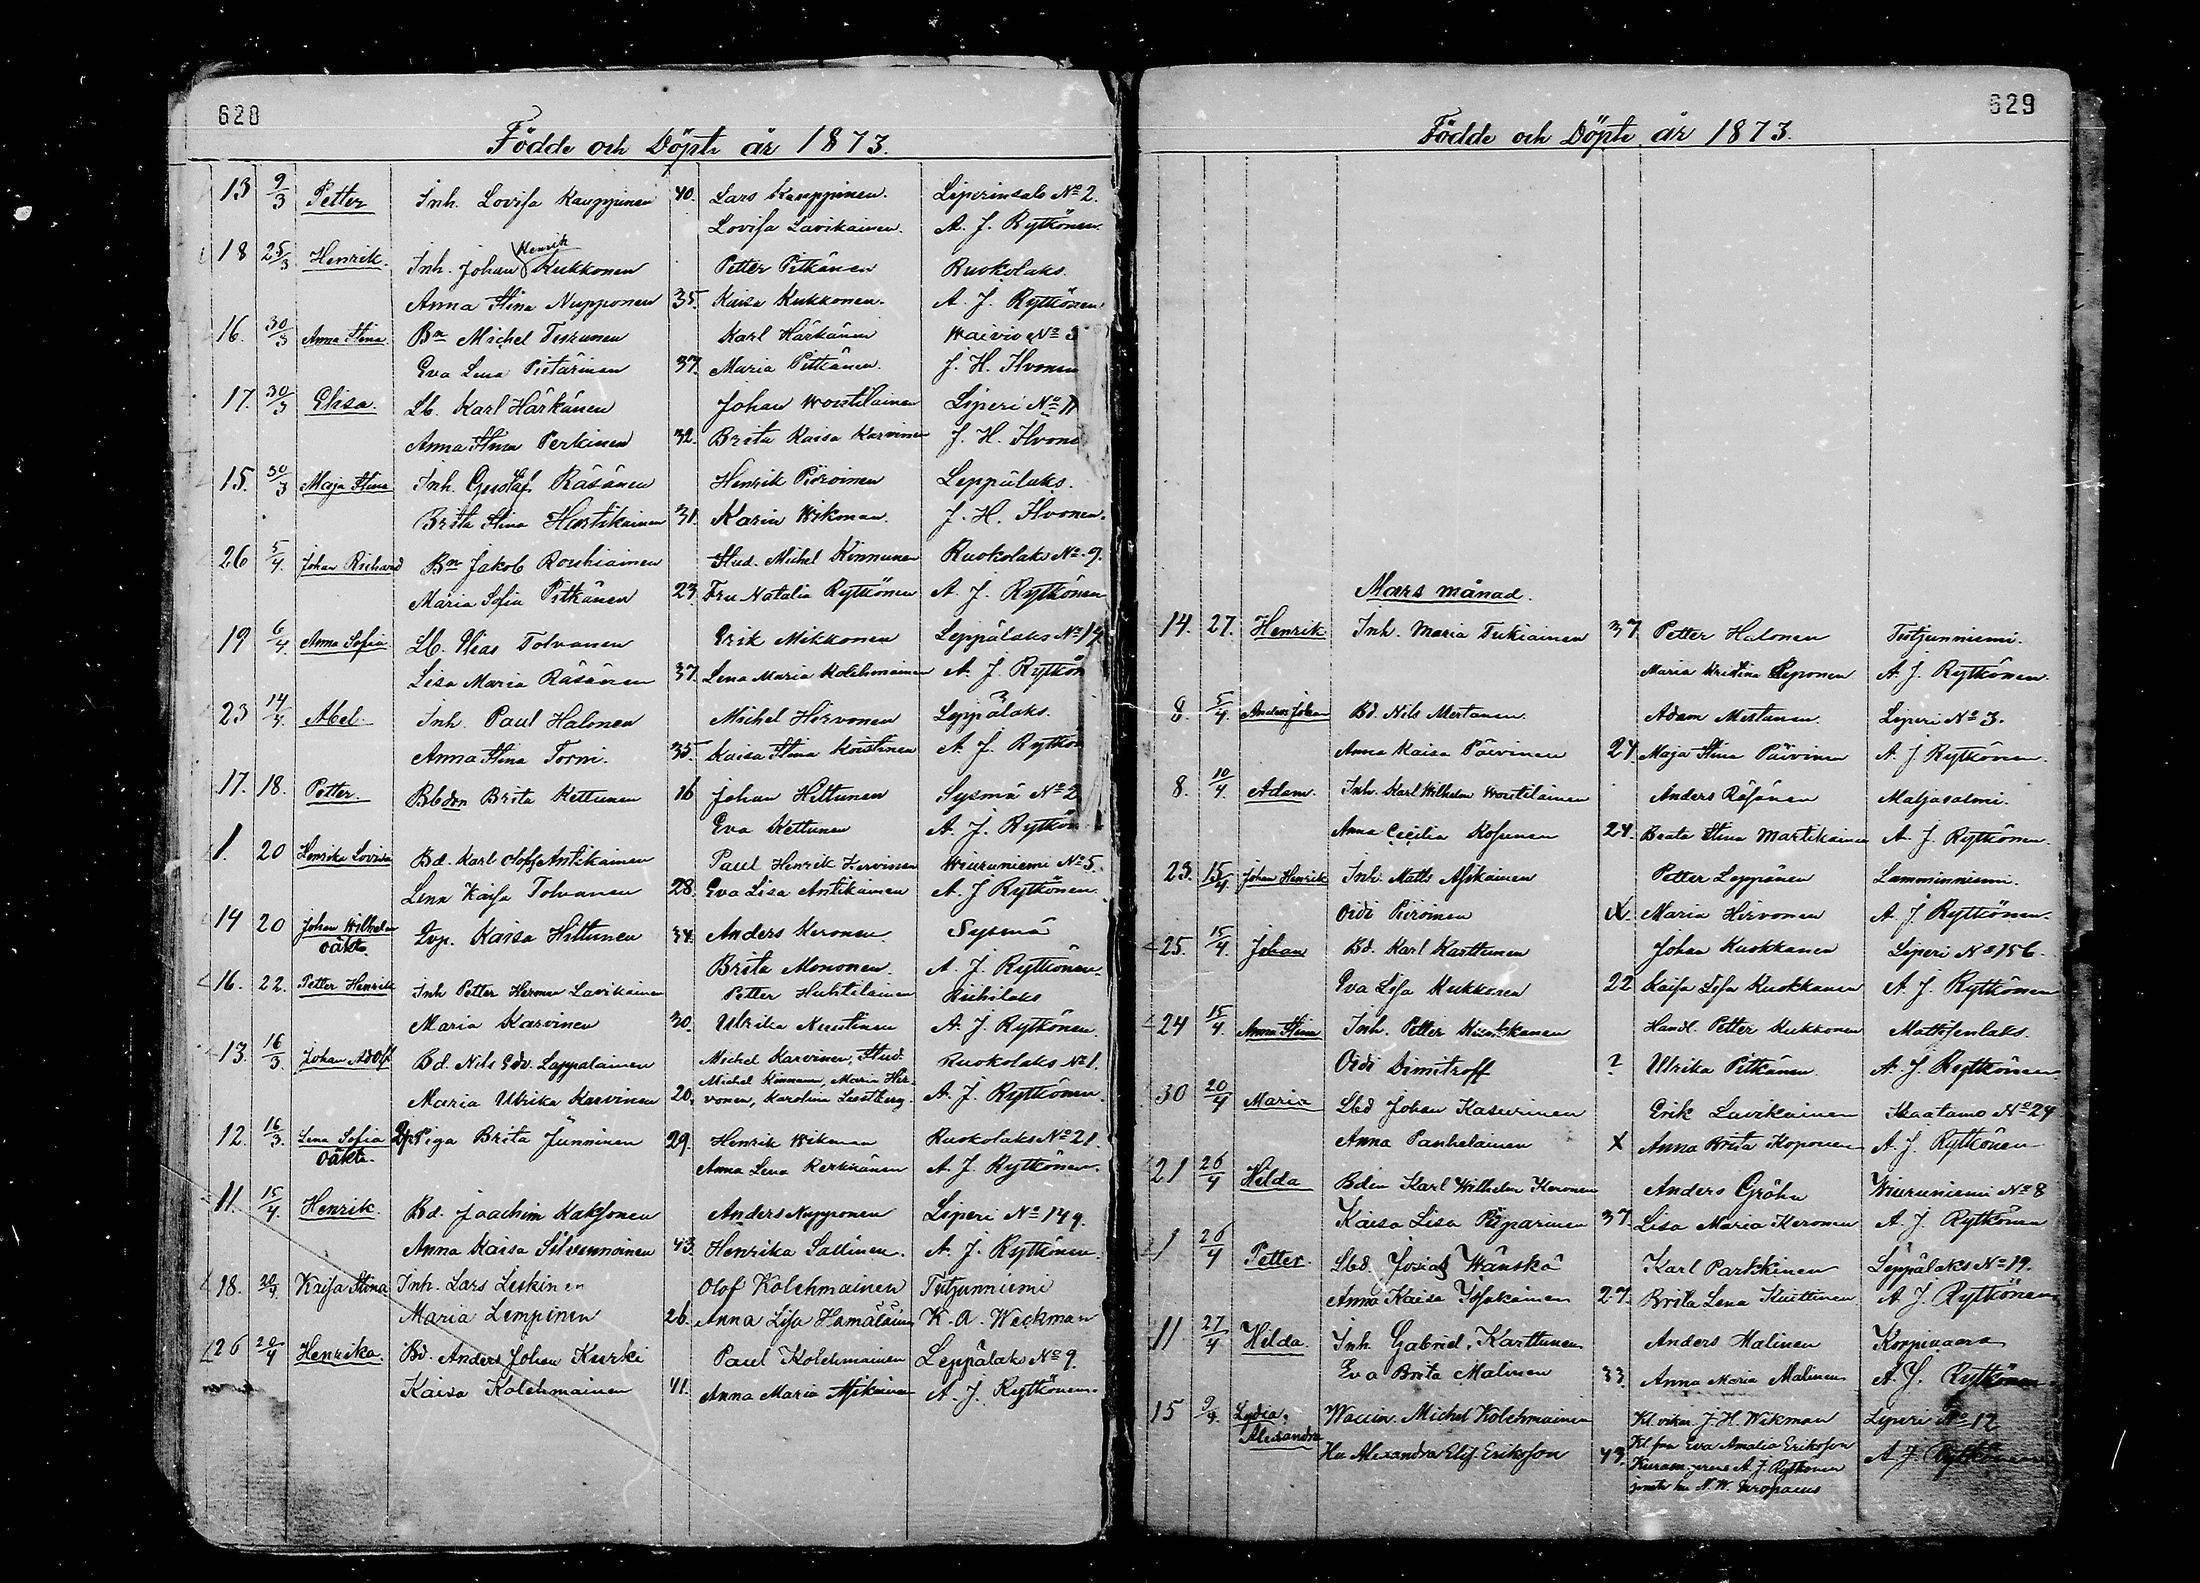 628
Födde och Döpte år 1873.
13 9/3 Petter Inh. Lovisa Kauppinen 40. Lars Kauppinen. Liperinsalo No 2.
Lovisa Lavikainen. A. J. Rytkönen.
Henrik
18 25/3 Henrik. Inh. Johan Kukkonen Petter Pitkänen Ruokolaks.
Anna Stina Nupponen 35. Kaisa Kukkonen. A. J. Rytkönen.
16. 30/3 Anna Stina Bn Michel Karl Härkänen Waivio No 3
Eva Lena Pistärinen 37. Maria Pitkänen. J. H. Ilvonen
17. 30/3 Elisa. Lb. Karl Härkänen Johan Woutilainen Liperi No 11
Anna Stina Perkinen 32. Brita Kaisa Karvinen J. H. Ilvone
15. 30/3 Maja Stina Inh. Gustaf Räsänen Henrik Piiroinen Leppälaks.
Brita Stina Hartikainen 31. Karin Wikman. J. H. Ilvonen.
26 5/4. Johan Richard Bn Jakob Rouhiainen Stud. Michel Kinnunen Ruokolaks No 9.
Maria Sofia Pitkänen 23. Fru Natalia Rytkönen A. J. Rytkönen
19 6/4 Anna Sofia Lb. Elias Tolvanen Erik Mikkonen Leppälaks No 19
Lisa Maria Räsänen 37. Lena Maria Kolehmainen A. J. Rytkön
23 14/4 Abel Inh. Paul Halonen Michel Hirvonen Leppälaks.
Anna Stina Tormi. 35. Kaisa Stina Koistinen A. J. Rytkön
17. 18. Petter. Bbdon Brita Kettunen 16 Johan Hiltunen Sysmä No 2
Eva Kettunen A. J. Rytkön
1. 20 Henrika Lovisa Bd. Karl Olof Antikainen Paul Henrik Kervinen Wiuruniemi No 5.
Lena Kaisa Tolvanen 28. Eva Lisa Antikainen A. J. Rytkönen.
14 20 Johan Wilhelm Qvp. Kaisa Hiltunen 34. Anders Keronen. Sysmä
oäkta. Brita Mononen. A. J. Rytkönen.
16. 22. Petter Henrik Inh Petter Herman Lavikainen Petter Huhtilainen Riihilaks
Maria Karvinen 30. Ulrika Kuutinen A. J. Rytkönen.
13. 16/3. Johan Adolf Bd. Nils Edv. Lappalainen Michel Karvinen, Stud. Ruokolaks No 1.
Michel Kinnunen, Maria Hir-
Maria Ulrika Karvinen 20. vonen, Karolina A. J. Rytkönen.
12. 16/3. Lena Sofia Qp Piga Brita Jänninen 29. Henrik Wikman Ruokolaks No 21.
oäkta. Anna Lena Kerkkänen A. J. Rytkönen.
11. 15/4. Henrik. Bd. Joachim Kaksonen Anders Nupponen Liperi No 149.
Anna Kaisa Silvennoinen 43. Henrika Sallinen. A. J. Rytkönen.
18. 20/4 Kaisa Stina Inh. Lars Leskinen Olof Kolehmainen Tutjunniemi
Maria Lempinen 26. Anna Lisa Hämäläinen K. A. Weckman
26 20/4 Henrika. Bd. Anders Johan Kurki Paul Kolehmainen Leppälaks No 9.
Kaisa Kolehmainen 41. Anna Maria Asikainen A. J. Rytkönen.
629
Födde och Döpte år 1873.
Mars månad.
14. 27. Henrik Inh. Maria Tukiainen 37 Petter Halonen Tutjunniemi.
Maria Kristina Reponen A. J. Rytkönen.
8. 5/4. Anders Johan Bd. Nils Mertanen. Adam Mertanen. Liperi No 3.
Anna Kaisa Päivinen 24 Maja Stina Päivinen A. J. Rytkönen.
8. 10/4. Adam. Inh. Karl Wilhelm Woutilainen Anders Räsänen Maljasalmi.
Anna Cecilia Kosunen 24. Beata Stina Martikainen A. J. Rytkönen.
23. 15/4 Johan Henrik Inh. Matts Asikainen Petter Leppänen Lamminniemi.
Oidi Piiroinen X Maria Hirvonen A. J. Rytkönen.
25. 15/4. Johan Bd. Karl Karttunen Johan Kuokkanen Liperi No 156.
Eva Lisa Kukkonen 22 Kaisa Lisa Kuokkanen A. J. Rytkönen
24 15/4. Anna Stina Inh. Petter Handl. Petter Kukkonen Mattisenlaks.
Oidi Dimitroff ? Ulrika Pitkänen A. J. Rytkönen.
30 20/4 Maria Lbd Johan Kasurinen Erik Lavikainen Kaatamo No 24
Anna Panhelainen X Anna Brita Koponen A. J. Rytkönen
21 26/4 Hilda Bden Karl Wilhelm Keronen Anders Gröhn Wiuruniemi No 8
Kaisa Lisa Piiparinen 37. Lisa Maria Keronen A. J. Rytkönen
1 26/4 Petter. Lbd. Josias Wänskä Karl Parkkinen Leppälaks No 19.
Anna Kaisa 27. Brita Lena Kuittinen A. J. Rytkönen
11 27/4 Hilda. Inh. Gabriel Karttunen Anders Malinen Korpivaara
Eva Brita Malinen 33. Anna Maria Malinen A. J. Rytkönen
15 9/4. Lydia Waccin. Michel Kolehmainen Kl vikar. J. H. Wikman Liperi No 12
Alexandra Kl fru Eva Amalia Eriksson
Hu Alexandra Elis. Eriksson 43. A. J. Rytkönen A. J. Rytkönen
N. W.